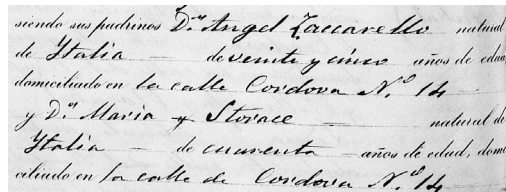 siendo sus padrinos D.n Angel Zaccarello natural
de Italia de veinte y cinco años de edad
domiciliado en la calle Cordova N.o 14
y D.a Maria Storace natural de
Italia de cuarenta años de edad, domi
ciliado en la calle de Cordova N.o 14